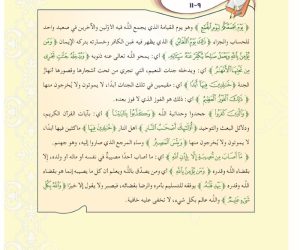 ٩-١١
﴿ يَوْمَ يَجْمَعُكُمْ لِيَوْمِ الْجَمْعِ ﴾ وهو يوم القيامة الذي يجمع الله فيه الأولين والآخرين في صعيد واحد
للحساب والجزاء ﴿ ذَلِكَ يَوْمُ التَّغَابُنِ ﴾ الذي يظهر فيه غبن الكافر وخسارته بتركه الإيمان ﴿ وَمَن
﴿ يُكَفِّرْ عَنْهُ سَيِّئَاتِهِ ﴾ أي: يمحو الله تعالى عنه ذنوبه ﴿ وَيُدْخِلْهُ جَنَّاتٍ تَجْرِي
مِن تَحْتِهَا الْأَنْهَارُ ﴾ أي: ويدخله جنات النعيم، التي تجري من تحت أشجارها وقصورها أنهار
الجنة ﴿ خَالِدِينَ فِيهَا أَبَدًا ﴾ أي: مقيمين في تلك الجنات أبدًا، لا يموتون ولا يُخرجون منها
﴿ ذَلِكَ الْفَوْزُ الْعَظِيمُ ﴾ أي: ذلك هو الفوز الذي لا فوز بعده.
﴿ وَالَّذِينَ كَفَرُوا ﴾ أي: جحدوا وحدانية الله ﴿ وَكَذَّبُوا بِآيَاتِنَا ﴾ أي: بآيات القرآن الكريم،
ودلائل البعث والتوحيد ﴿ أُولَئِكَ أَصْحَابُ النَّارِ ﴾ أي: أهل النار ﴿ خَالِدِينَ فِيهَا ﴾ ماكثين فيها أبدًا
لا يموتون ولا يُخرجون منها ﴿ وَبِئْسَ الْمَصِيرُ ﴾ وساء المرجع الذي صاروا إليه، وهو جهنم.
﴿ مَا أَصَابَ مِن مُّصِيبَةٍ إِلَّا بِإِذْنِ اللَّهِ ﴾ أي: ما أصاب أحدًا مصيبةٌ في نفسه أو ماله أو ولده، إلا
بقضاء الله وقدره ﴿ وَمَن يُؤْمِن بِاللَّهِ ﴾ أي: ومن يصدّق بالله ويعلم أن كل ما يصيبه إنما هو بقضاء
الله وقدره ﴿ يَهْدِ قَلْبَهُ ﴾ يوفقه للتسليم بأمره والرضا بقضائه، فيصبر ولا يقول إلا خيرًا ﴿ وَاللَّهُ بِكُلِّ
شَيْءٍ عَلِيمٌ ﴾ والله عالم بكل شيء، لا تخفى عليه خافية.